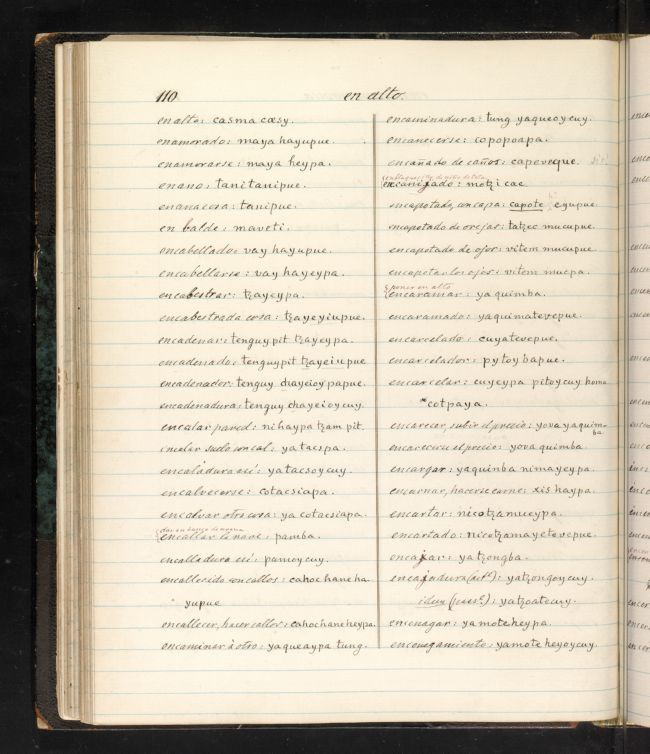 110
en alto.
en alto: casma cœsy.
enamorado: maya hayupue.
enamorarse: maya heypa.
enano: tanitanipue.
enana cosa: tanipue.
en balde: maveti.
encabellado: vay hayupue.
encabellarse: vay hayeypa.
encabestrar: tzayeypa.
encabestrada cosa: tzayeyiupue.
encadenar: tenguy pit tzayeypa.
encadenado: tenguypit tzayeiupue
encadenador: tenguy chayeioy papue.
encadenadura: tenguy chayeioycuy.
encalar pared: nihaypa tzam pit.
encalar suelo con cal: yatacspa.
encaladura asi: yatacsoycuy.
encalvecerse: cotacsiapa.
encalvar otra cosa: ya cotacsiapa.
dar en banco de arena
encallar la nave: pamba.
encalladura asi: pamoycuy.
encallecido con callos: cahochaneha
yupue
encallecer, hacer callos: cahochaneheypa.
encaminar à otro: yaqueaypa tung.
encaminadura: tung yaqueoycuy.
encanecerse: copopoapa.
encañado de caños: capeveque.
encanijado: motzicae
encapotado, con capa: capote eyupue.
encapotado de orejas: tatzec mucupue.
encapotado de ojos: vitem mucupue.
encapotar los ojos: vitem mucpa.
poner en alto
encaramar: yaquimba.
encaramado: yaquimatevepue.
encarcelado: cuyatevepue.
encarcelador: pytoybapue.
encarcelar: cuyeypa pitoycuy homo
cotpaya.
encarecer, subir el precio: yova yaquim-
ba.
encarecerse el precio: yova quimba.
encargar: yaquinba nimayeypa.
encarnar, hacerse carne: xis haypa.
encartar: nicotzamueypa.
encartado: nicotzamayetevepue.
encajar: yatzongba.
encajadura (act.): yatzongoycuy.
idem (pas.): yatzoatecuy.
encenagar: yamoteheypa.
encenegamiento: yamoteheyoycuy.